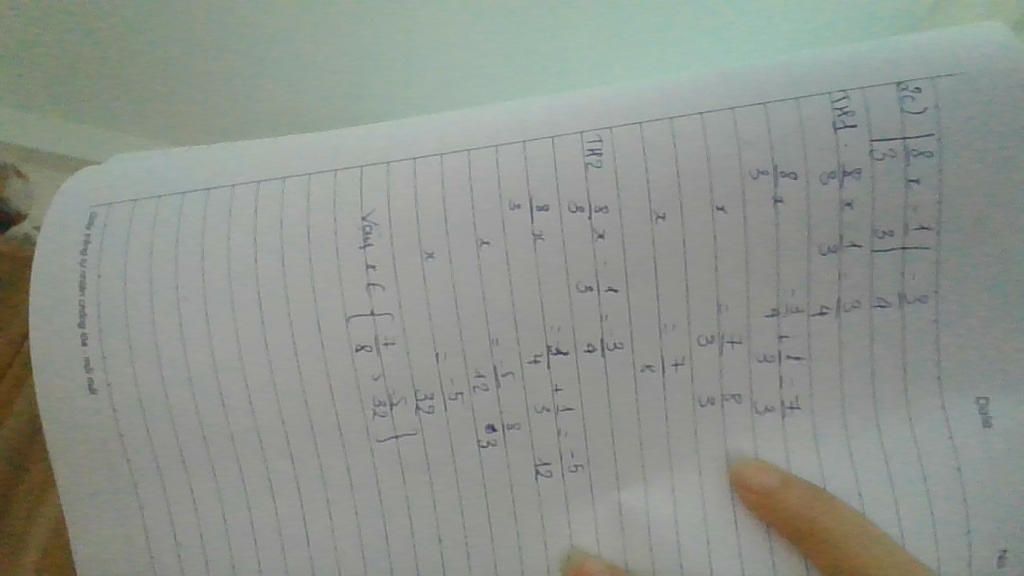 Date No
2c) | 8/3 x - 1/3 | = 3/4
TH1: 8/3 x - 1/3 = 3/4
8/3 x = 3/4 + 1/3 = 7/3
x = 7/3 : 8/3
x = 7/8
TH2 8/3 x - 1/3 = -3/4
8/3 x = -3/4 + 1/3 = -5/12
x = -5/12 : 8/3
x = -5/32
Vậy x ∈ { 7/8 ; -5/32 }